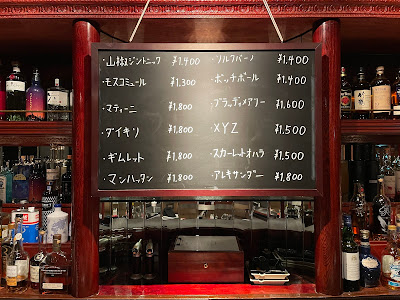 ・山椒ジントニック ¥1,400
・モスコミュール ¥1,300
・マティーニ ¥1,800
・ダイキリ ¥1,800
・ギムレット ¥1,800
・マンハッタン ¥1,800
・ソルクバーノ ¥1,400
・ボッチボール ¥1,400
・ブラッディメアリー ¥1,600
・XYZ ¥1,500
・スカーレットオハラ ¥1,500
・アレキサンダー ¥1,800